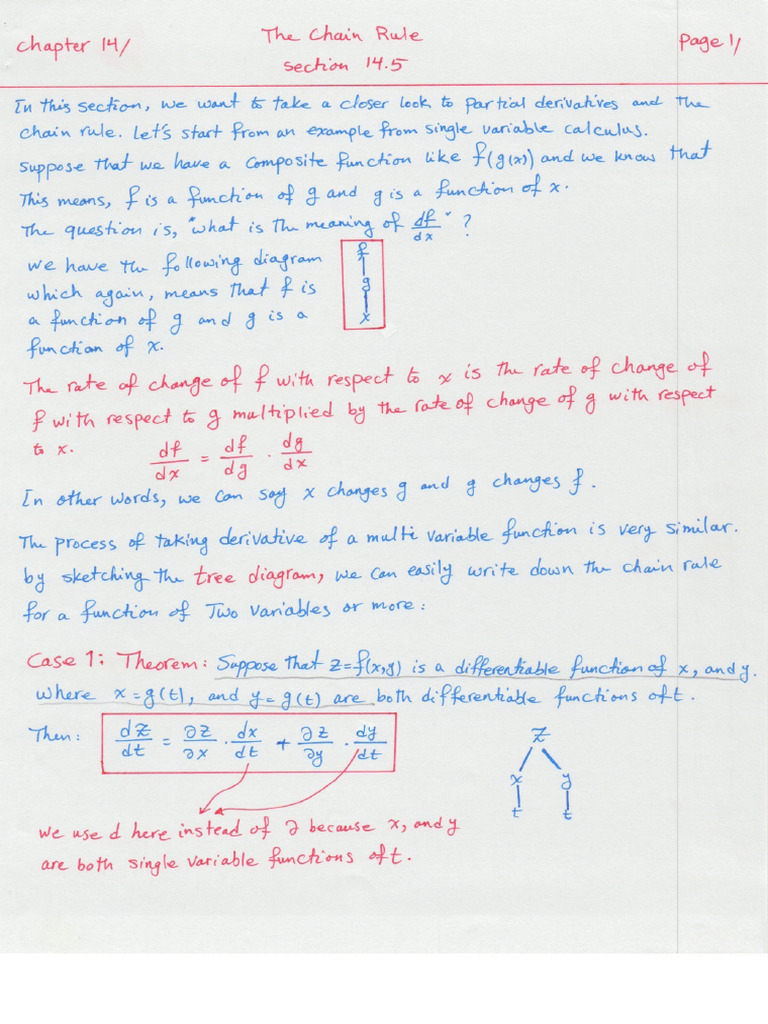 Chapter 14/ The Chain Rule Page 1/
section 14.5
In this section, we want to take a closer look to partial derivatives and the
chain rule. Let's start from an example from single variable calculus.
Suppose that we have a composite function like f(g(x)) and we know that
This means, f is a function of g and g is a function of x.
The question is, "what is the meaning of df/dx" ?
We have the following diagram
which again, means that f is
a function of g and g is a
function of x.
f
g
x
The rate of change of f with respect to x is the rate of change of
f with respect to g multiplied by the rate of change of g with respect
to x. df/dx = df/dg · dg/dx
In other words, we can say x changes g and g changes f.
The process of taking derivative of a multi variable function is very similar.
by sketching the tree diagram, we can easily write down the chain rule
for a function of Two variables or more:
Case 1: Theorem: Suppose that z=f(x,y) is a differentiable function of x, and y.
where x=g(t), and y=g(t) are both differentiable functions of t.
Then: dz/dt = ∂z/∂x · dx/dt + ∂z/∂y · dy/dt
z
x y
t t
We use d here instead of ∂ because x, and y
are both single variable functions of t.